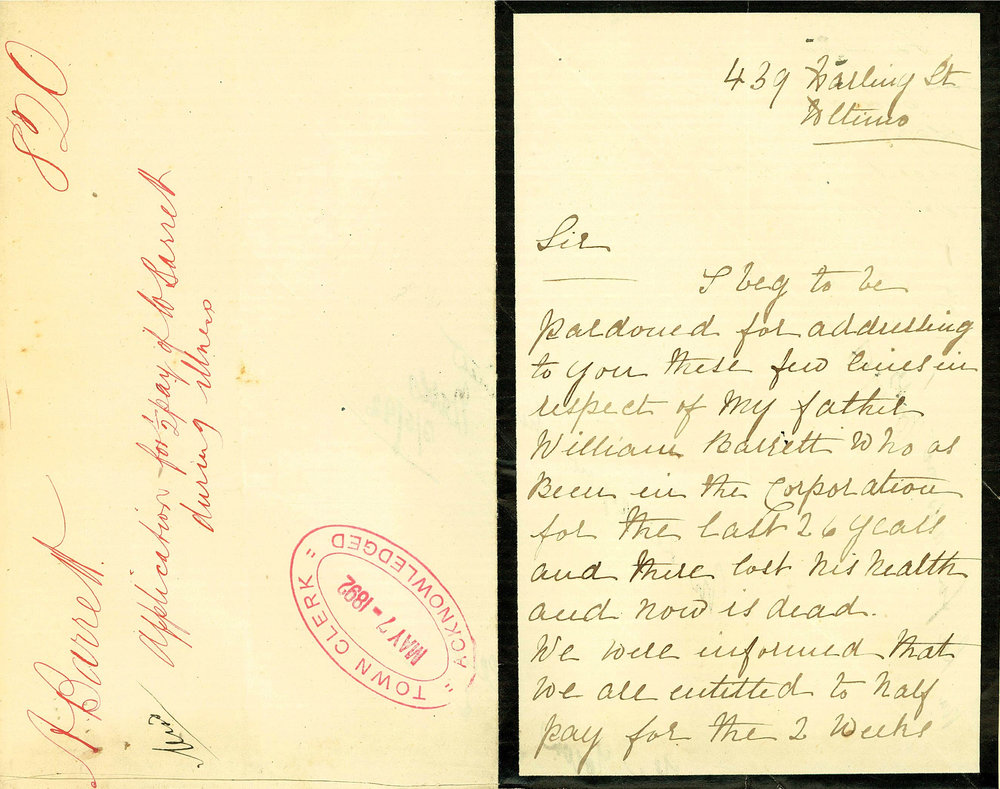 820
Application for ½ pay of W Barret
during illness
Barrett.
"TOWN CLERK"
MAY 7-1892
ACKNOWLEDGED
439 Harling St
Ultimo
Sir
I beg to be
pardoned for addressing
to you these few lines in
respect of My father
William Barrett Who as
Been in the Corporation
for the last 26 years
and there lost his health
and now is dead.
We were informed that
we are entitled to half
pay for the 2 Weeks